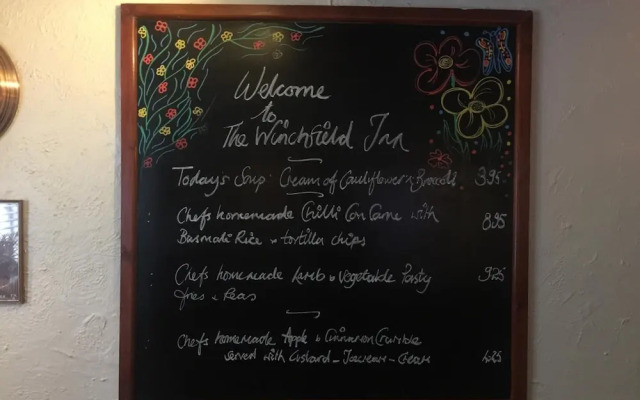 Welcome
to
The Winchfield Inn
Todays Soup: Cream of Cauliflower & Broccoli 3.95
Chefs homemade Chilli Con Carne with 8.95
Basmati Rice & tortilla chips
Chefs homemade Lamb & Vegetable Pasty 9.25
fries & Peas
Chefs homemade Apple & Cinnamon Crumble
served with Custard - Icecream - Cream 4.25